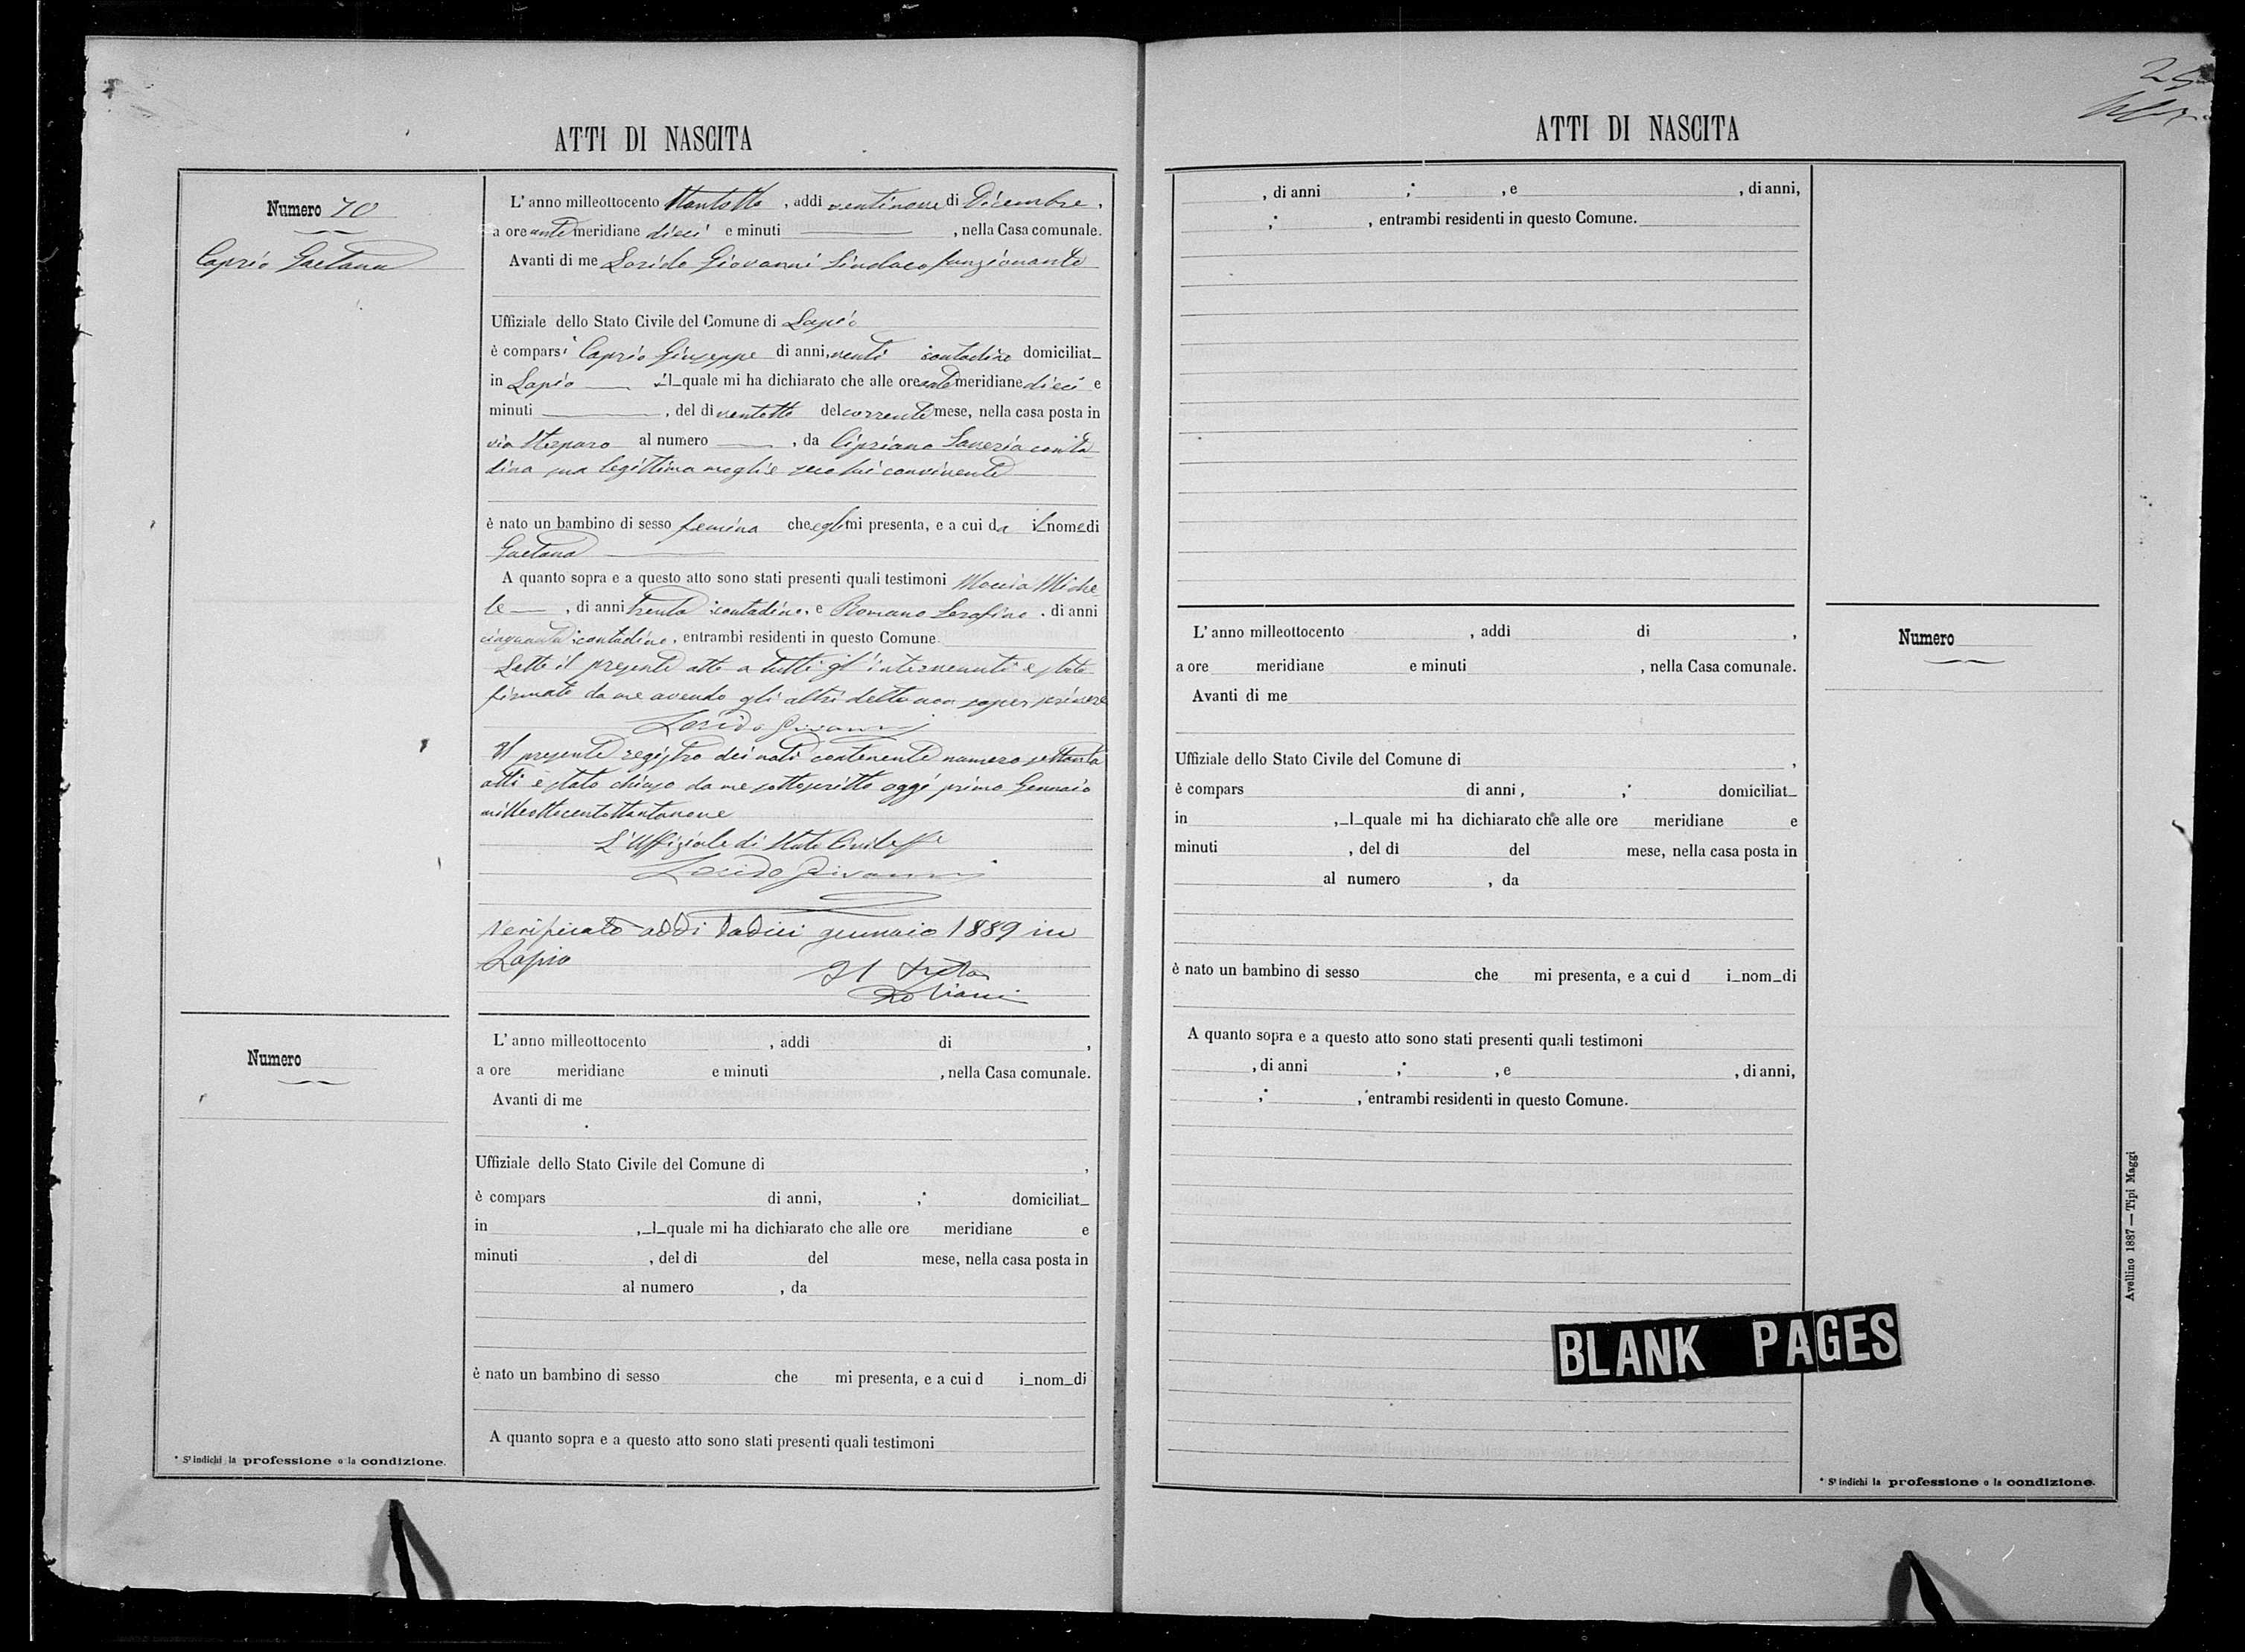 ATTI DI NASCITA
Numero 70
Caprio Gaetana
L'anno milleottocento ottantotto, addì ventinove di Dicembre,
a ore antemeridiane dieci e minuti, nella Casa comunale.
Avanti di me Lorido Giovanni Sindaco funzionante
Uffiziale dello Stato Civile del Comune di Lapio
è comparsi Caprio Giuseppe di anni, venti contadino domiciliat_
in Lapio il_quale mi ha dichiarato che alle ore antemeridiane dieci e
minuti, del dì ventotto del corrente mese, nella casa posta in
via al numero, da Cipriano Saveria conta
dina sua legittima moglie seco lui convivente
è nato un bambino di sesso femina che egli mi presenta, e a cui da il nome di
Gaetana
A quanto sopra e a questo atto sono stati presenti quali testimoni Moccia Miche
le, di anni trenta contadino, e Romano Serafino, di anni
cinquanta contadino, entrambi residenti in questo Comune.
Letto il presente atto a tutti gl'intervenuti è stato
firmato da me avendo gli altri detto non saper scrivere
Lorido Giovanni
Il presente registro dei nati contenente numero settanta
atti è stato chiuso da me sottoscritto oggi primo Gennaio
milleottocentottantanove
L'Uffiziale di Stato Civile ff
Lorido Giovanni
Verificato addì gennaio 1889 in
Lapio
Il
Numero
L'anno milleottocento, addì di,
a ore meridiane e minuti, nella Casa comunale.
Avanti di me
Uffiziale dello Stato Civile del Comune di,
è compars di anni, ;* domiciliat_
in, _l_quale mi ha dichiarato che alle ore meridiane e
minuti, del dì del mese, nella casa posta in
al numero, da
è nato un bambino di sesso che mi presenta, e a cui d i_nom_di
A quanto sopra e a questo atto sono stati presenti quali testimoni
* Si indichi la professione o la condizione.
ATTI DI NASCITA
, di anni ;*, e, di anni,
;*, entrambi residenti in questo Comune.
L'anno milleottocento, addì di,
Numero
a ore meridiane e minuti, nella Casa comunale.
Avanti di me
Uffiziale dello Stato Civile del Comune di,
è compars di anni, ;* domiciliat_
in, _l_quale mi ha dichiarato che alle ore meridiane e
minuti, del dì del mese, nella casa posta in
al numero, da
è nato un bambino di sesso che mi presenta, e a cui d i_nom_di
A quanto sopra e a questo atto sono stati presenti quali testimoni
, di anni ;*, e, di anni,
;*, entrambi residenti in questo Comune.
BLANK PAGES
* Si indichi la professione o la condizione.
Avellino 1887 — Tipi Maggi